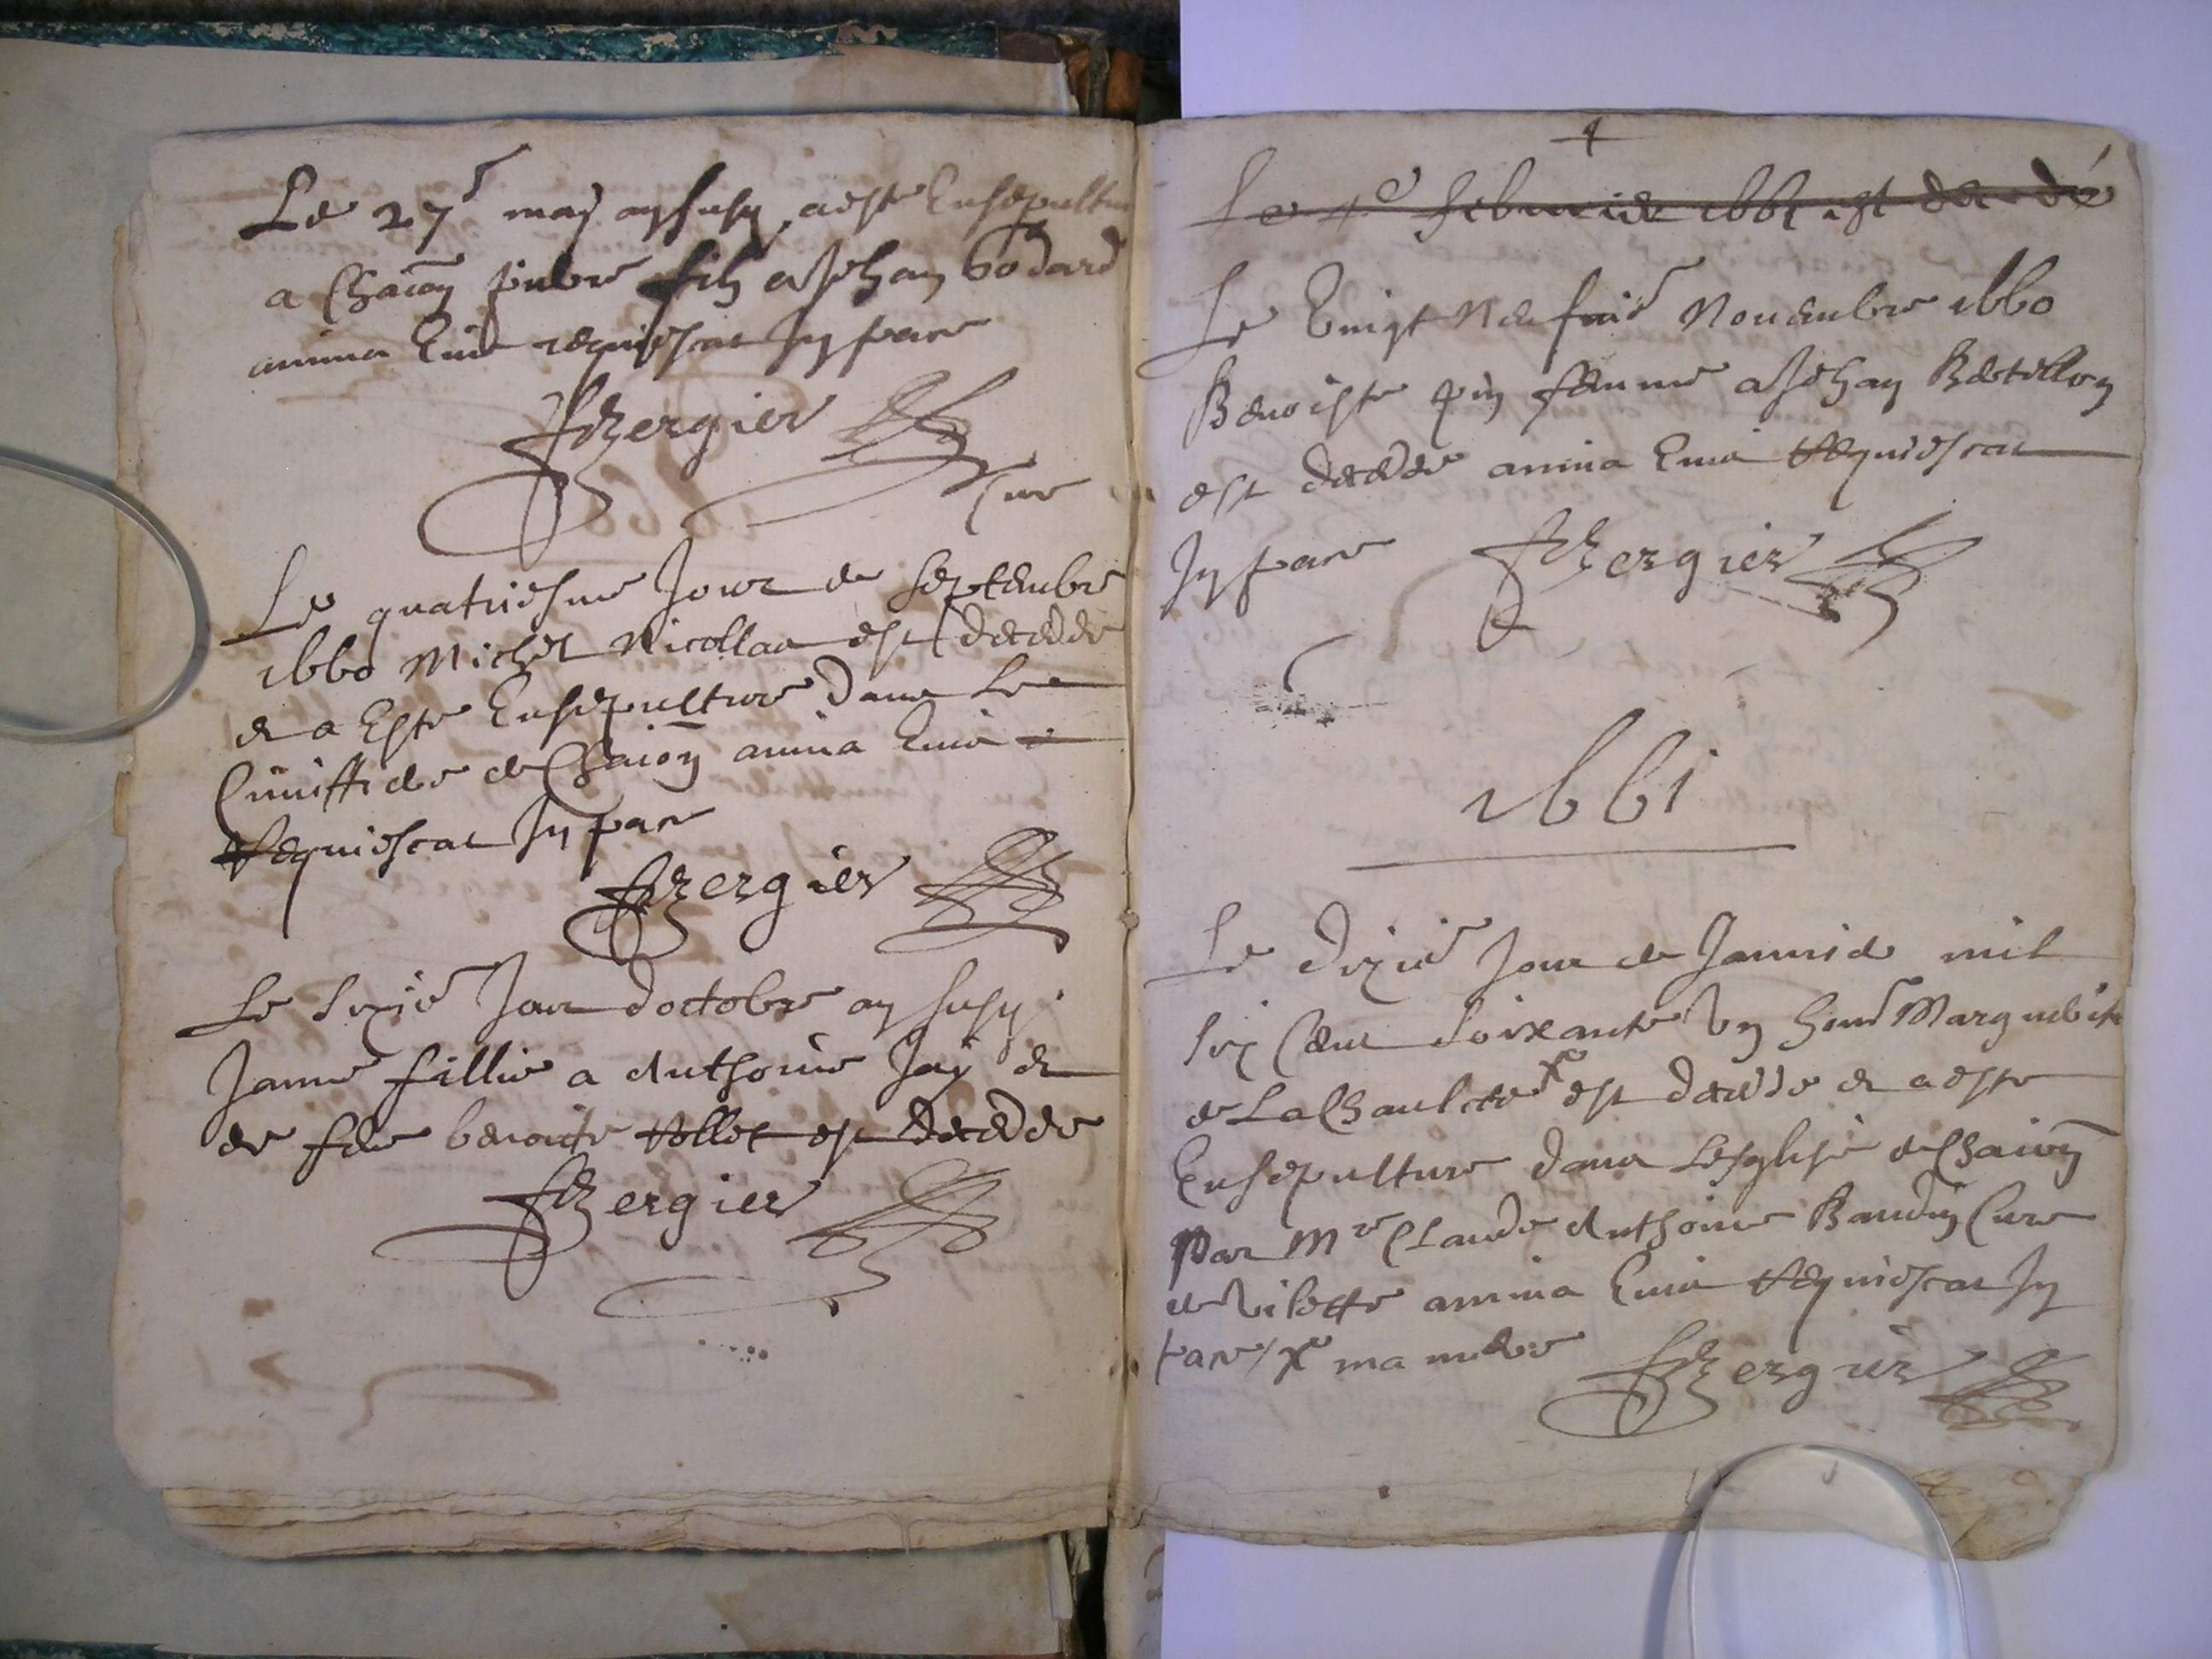 Le 27e may an susd aeste Ensepultur
a Chaion pierre fils a Jehan Bodard
anima Eius requiescat In pace
Bergier
Cure
Le quatriesme Jour de septembre
1660 Michel Nicollas est decede
et a Este Ensepulture dans Le
Cimittiere de Chaion anima Eius
Requiescat In pace
Bergier
Le sixie Jour doctobre an susd
Janne fillie a Anthoine Jay et
de feue benoite Vollet est decedee
Bergier
4
Le 4e febvrier 1661 est decedé
Le Vingt Neufvie Novembre 1660
Benoiste femme a Jehan Retillon
est decedee anima Eius Requiescat
In pace Bergier
1661
Le dixie Jour de Janvier mil
six Cent soixante Un hon Marguerite
de La Chaul est decedee et a este
Ensepulture dans Lesglise de Chaion
par Mre Claude Anthoine Baudin Cure
de Vilette anima Eius Requiescat In
pace / X ma mere Bergier